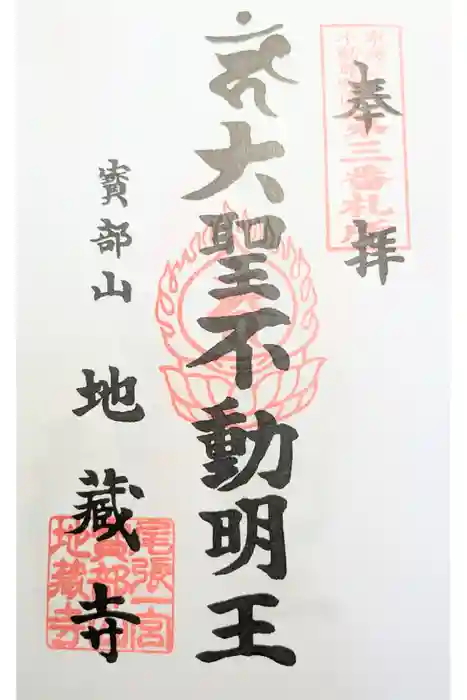 奉拝
第三番札所
大聖不動明王
寳部山
地蔵寺
尾張一宮
寳部山
地蔵寺